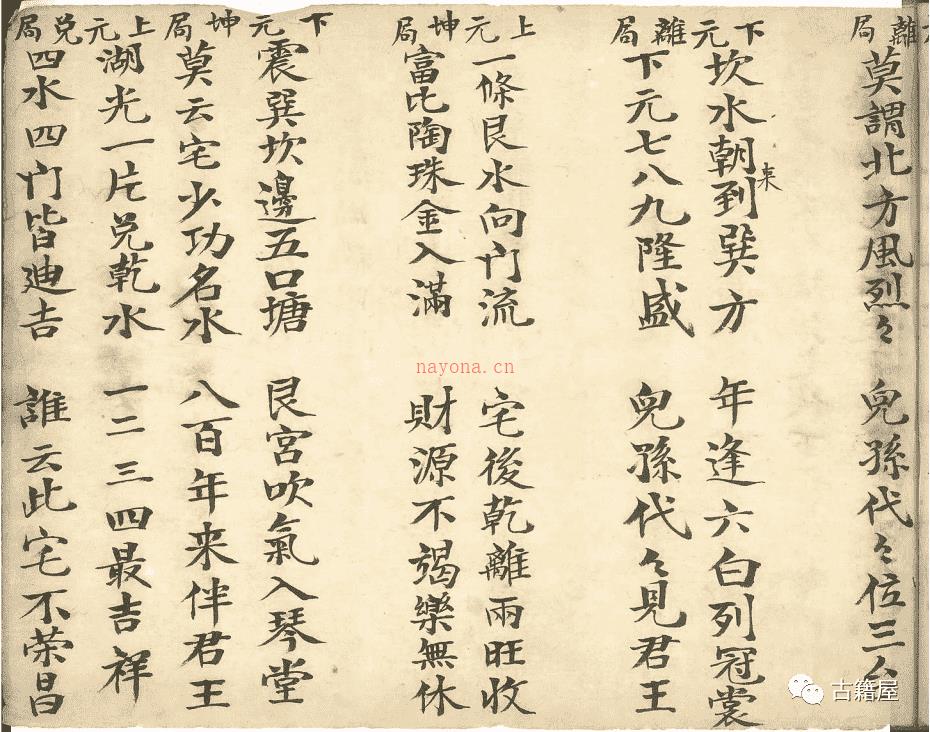 離局
莫謂北方風烈々 兒孫代々位三公
下元離局
坎水朝到来巽方 年逢六白列冠裳
下元七八九隆盛 兒孫代々見君王
上元坤局
一條艮水向门流 宅後乾離兩旺收
富比陶珠金入滿 財源不竭樂無休
下元坤局
震巽坎邊五口塘 艮宮吹氣入琴堂
莫云宅少功名水 八百年来伴君王
上元兑局
湖光一片兑乾水 一二三四最吉祥
四水四门皆迪吉 誰云此宅不荣昌
nayona.cn
古籍屋